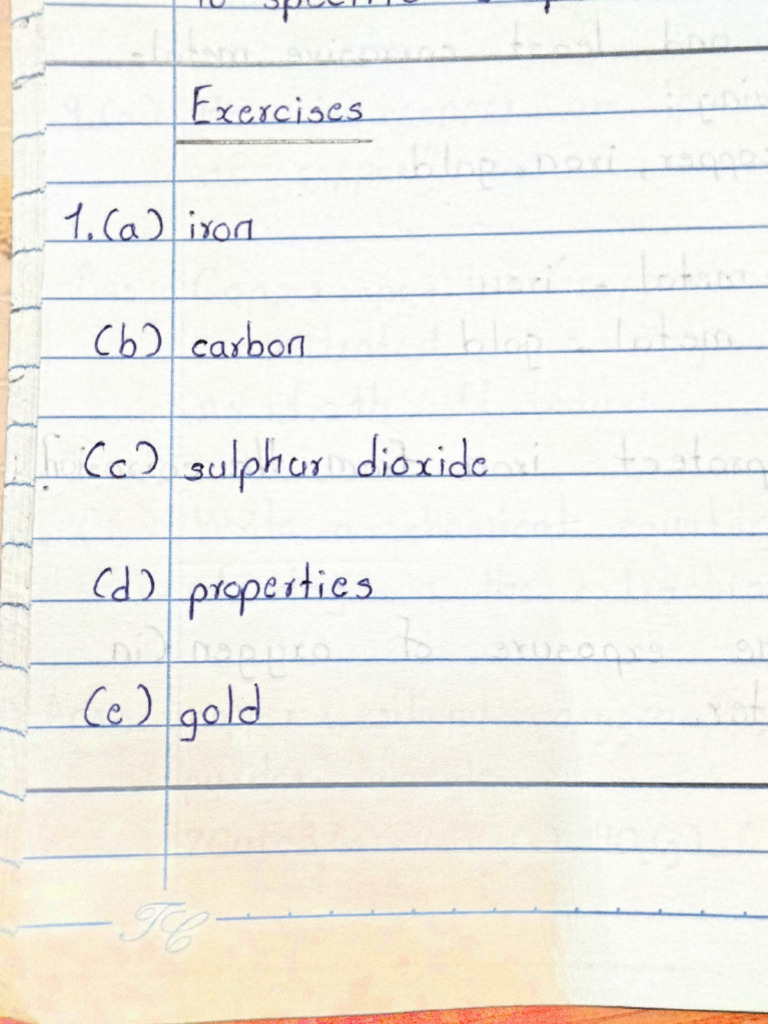 to specific
Exercises
1.(a) iron
(b) carbon
(c) sulphur dioxide
(d) properties
(e) gold
TC